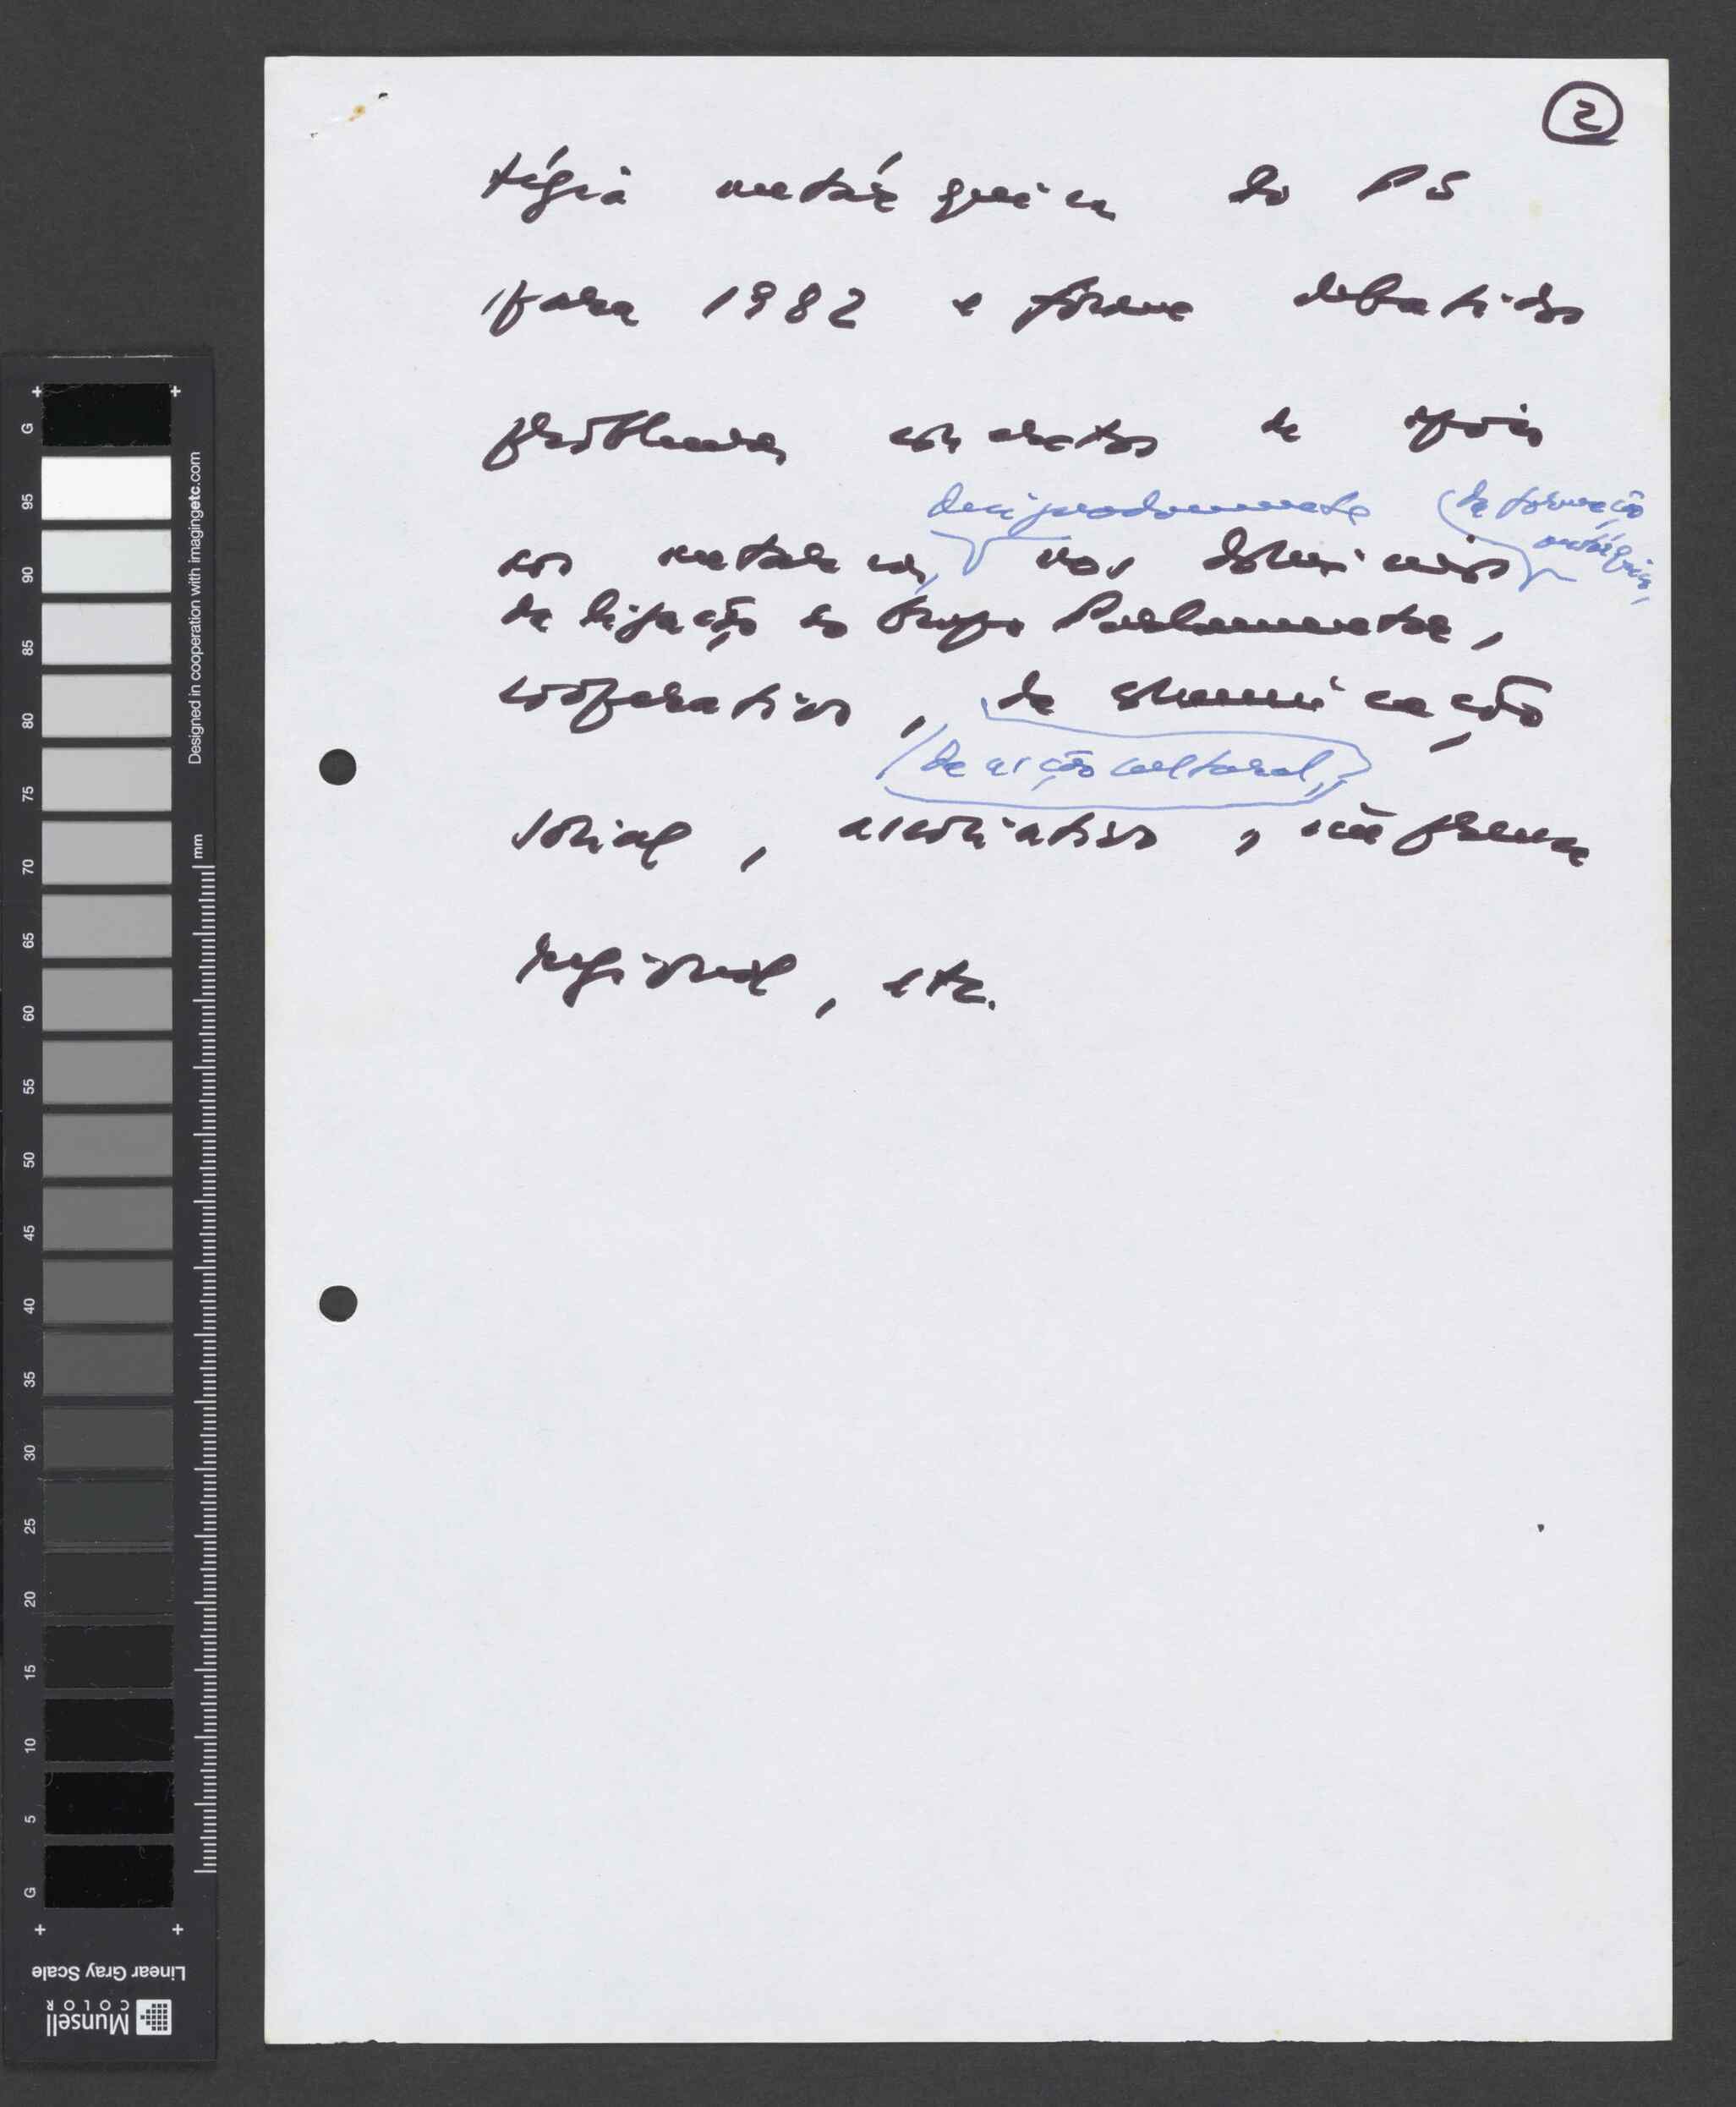 2
tégia autárquica do PS
para 1982 e foram debatidos
problemas concretos de apoio
designadamente (de formação
aos autarcas, nos domínios autárquica,
da ligação ao Grupo Parlamentar,
cooperativo, da comunicação
(de acção cultural,)
social, associativo, imprensa
regional, etc.
G
95
90
85
80
75
70
65
60
55
50
45
40
35
30
25
20
15
10
5
G
Designed in cooperation with imagingetc.com
mm
Linear Gray Scale
Munsell
COLOR